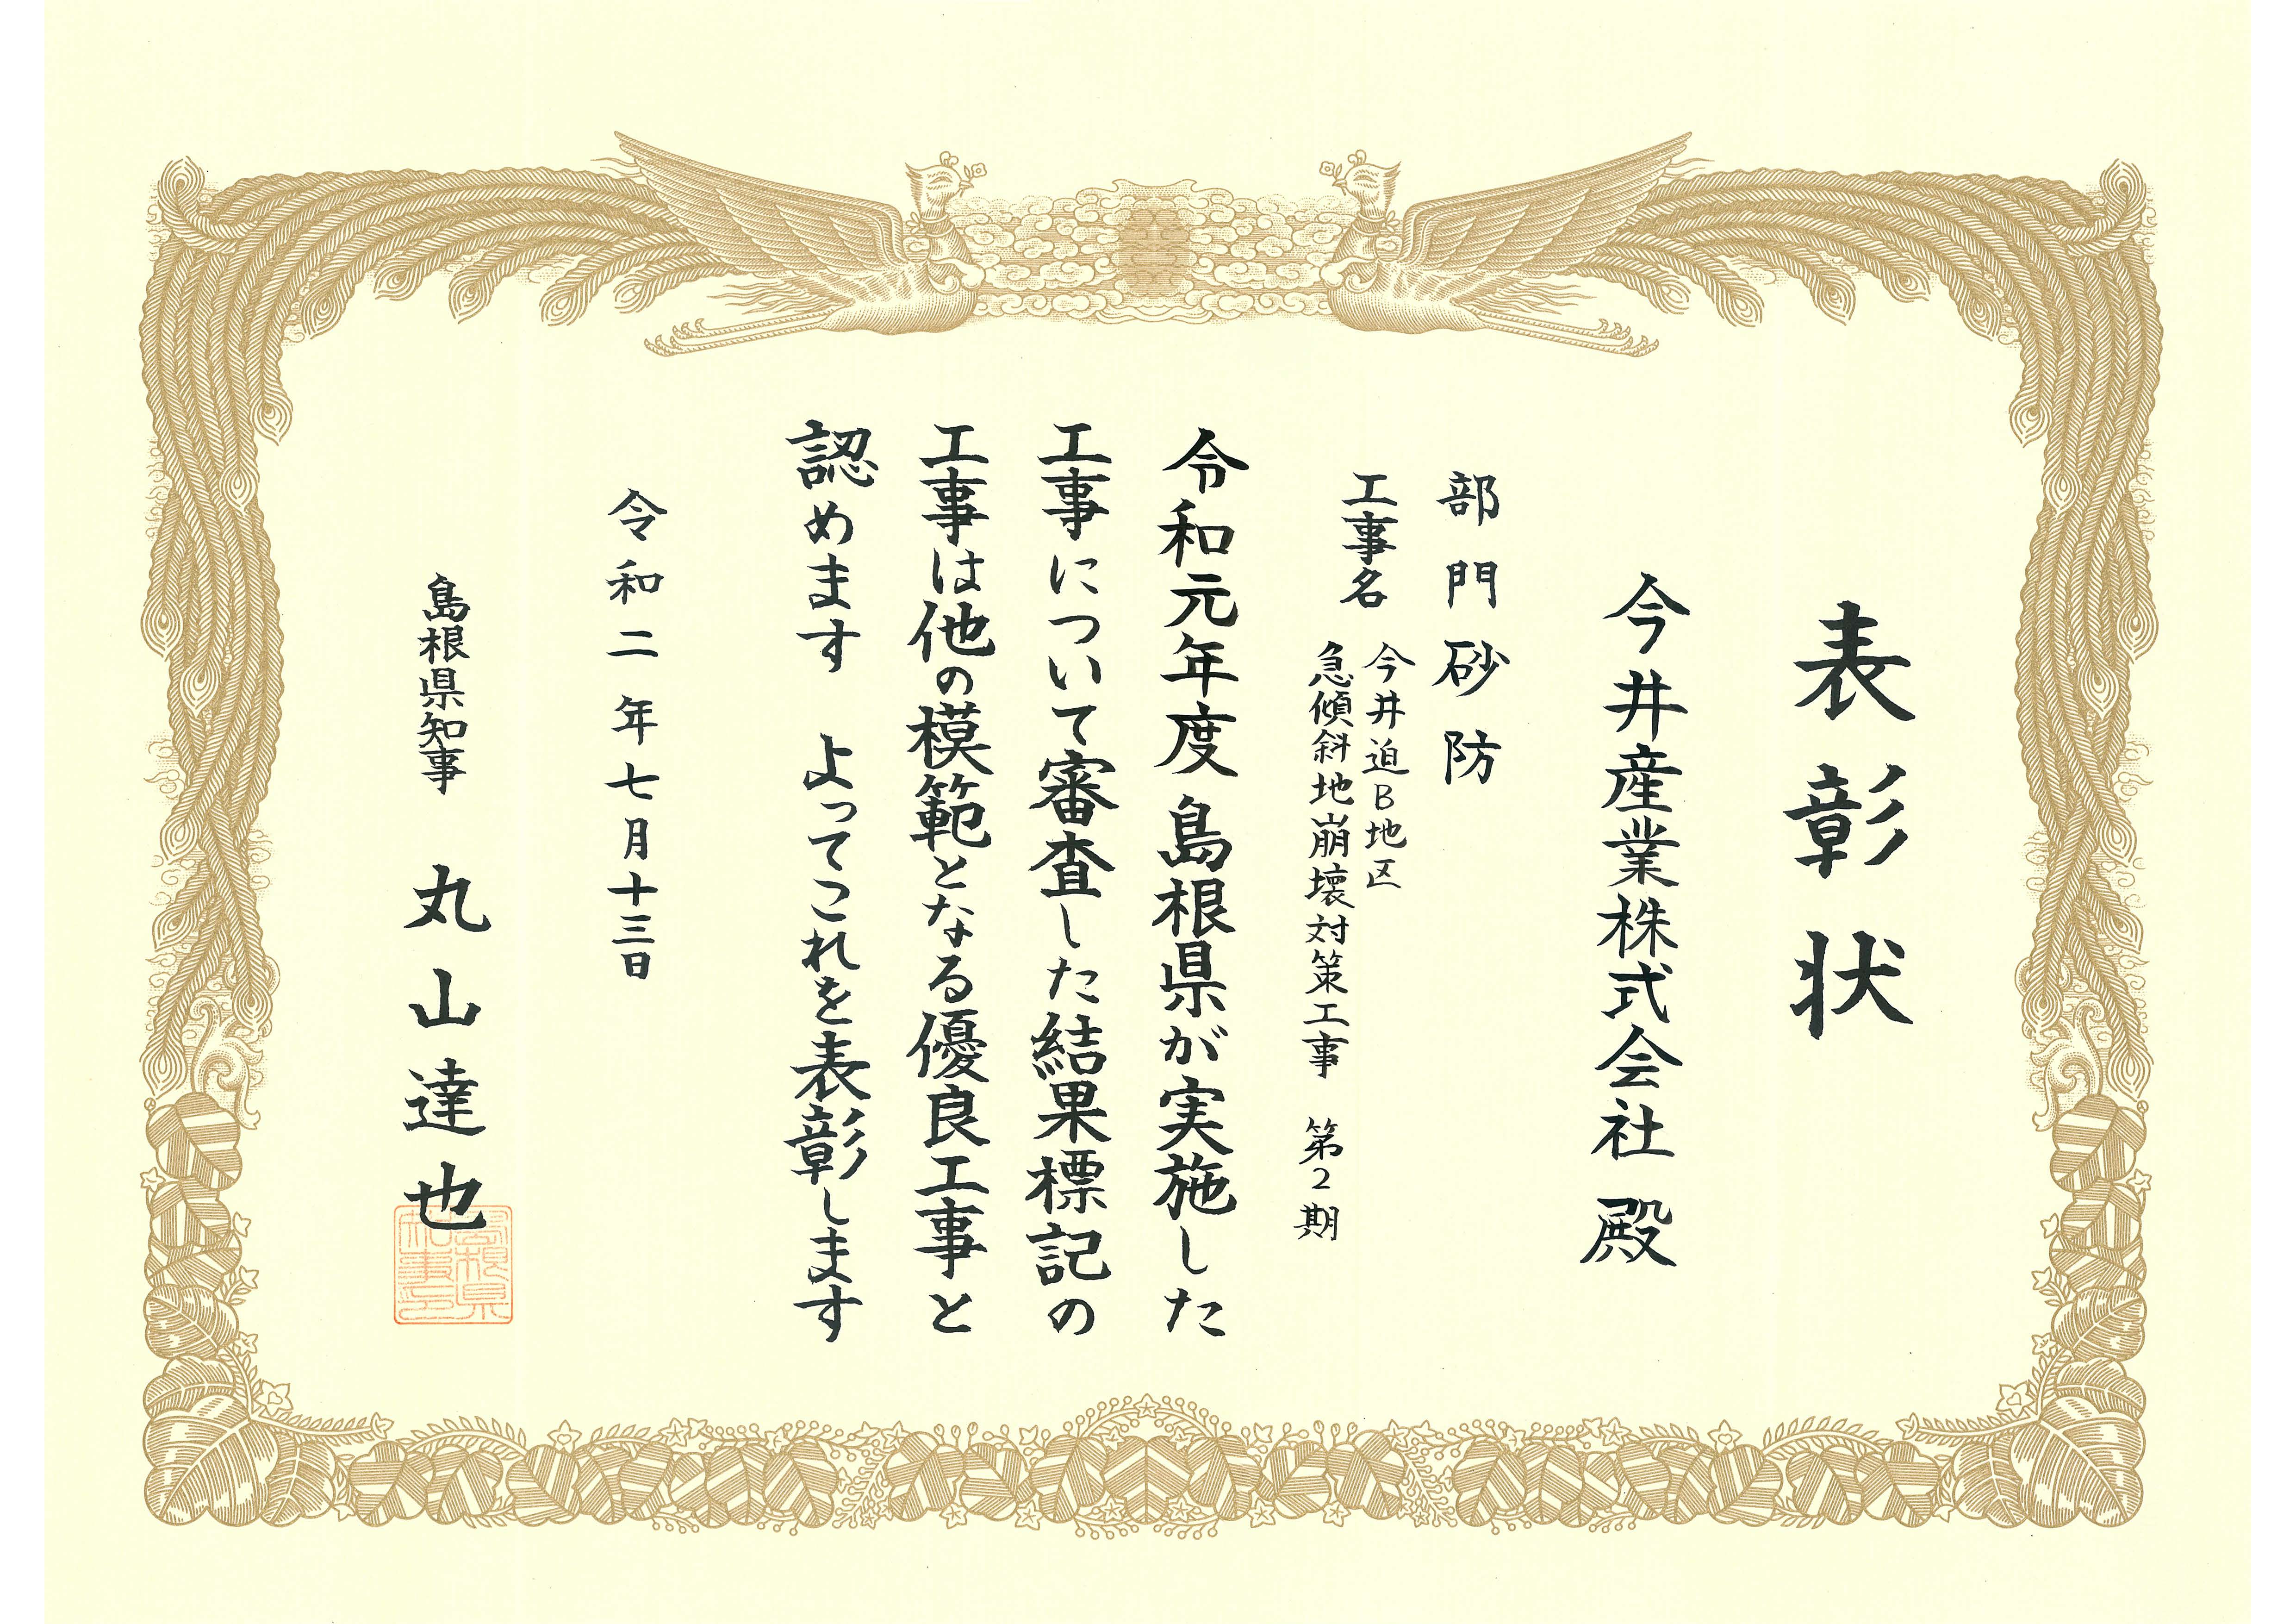 表彰状
今井産業株式会社 殿
部門 砂防
工事名 今井迫B地区
急傾斜地崩壊対策工事 第2期
令和元年度 島根県が実施した
工事について審査した結果標記の
工事は他の模範となる優良工事と
認めます よってこれを表彰します
令和二年七月十三日
島根県知事 丸山達也
島根県
知事印